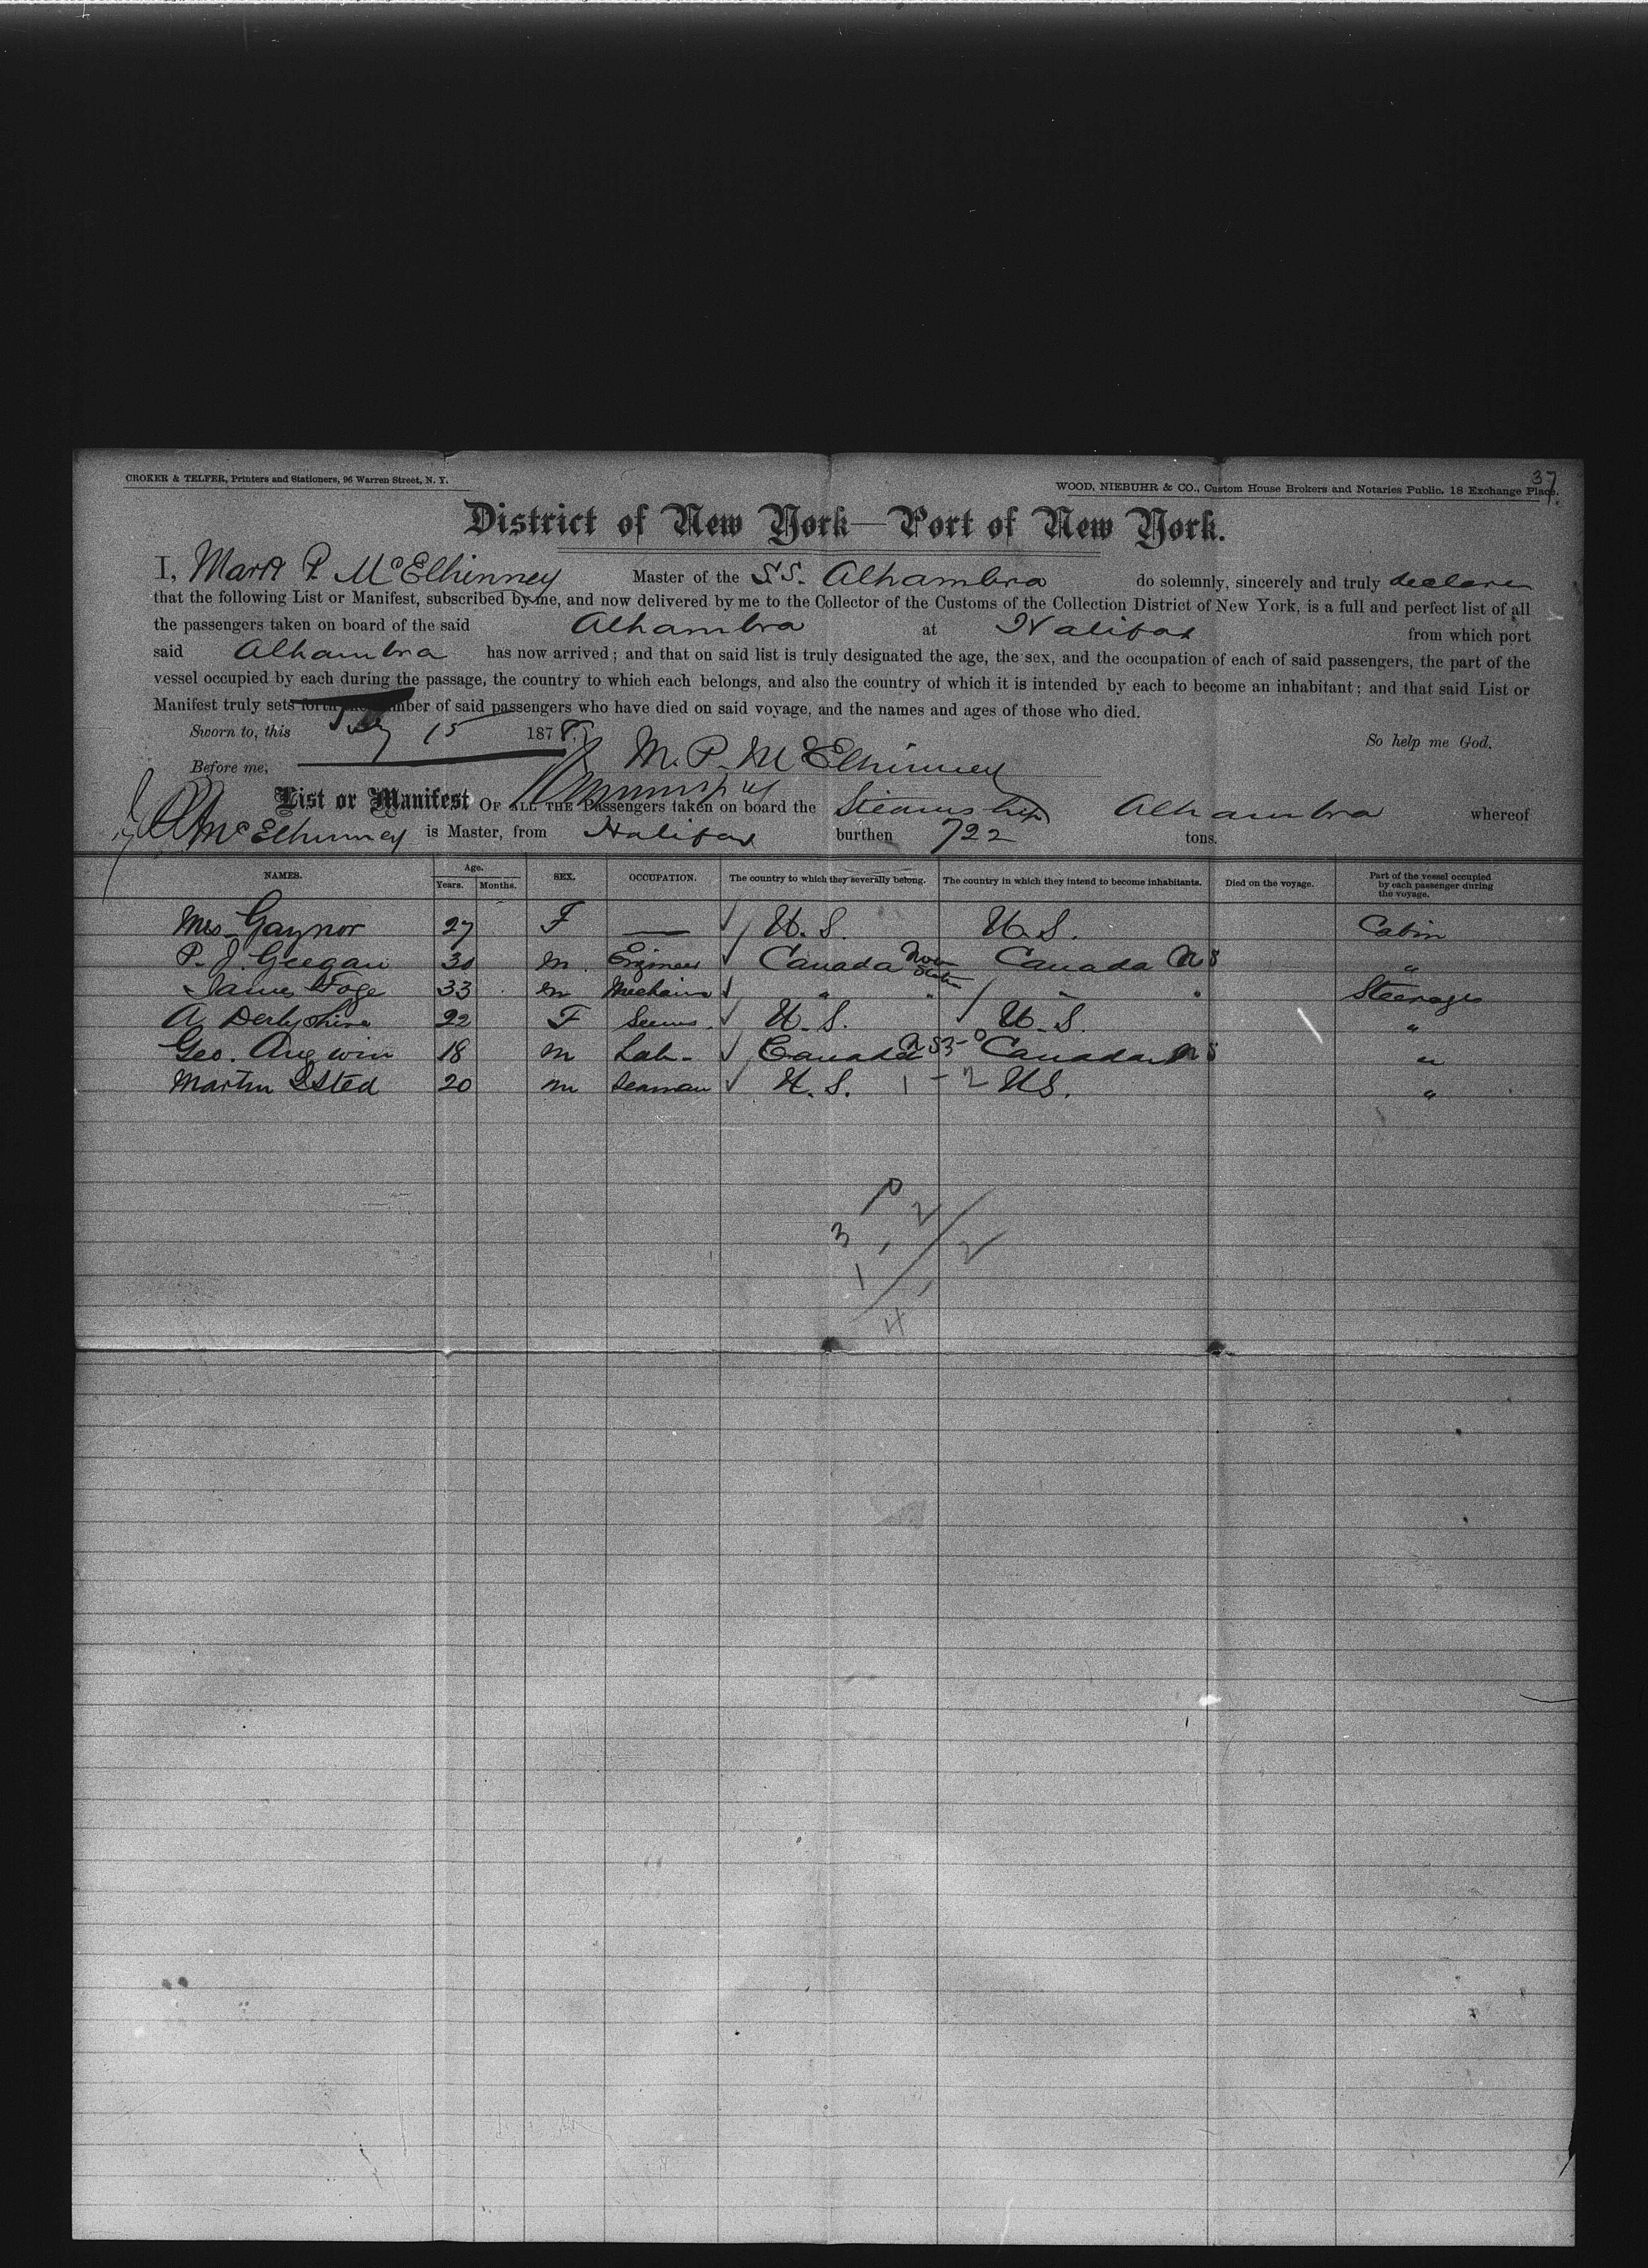 37
CROKER & TELFER, Printers and Stationers, 96 Warren Street, N. Y.
WOOD, NIEBUHR & CO., Custom House Brokers and Notaries Public. 18 Exchange Place.
District of New York—Port of New York.
I, Mark P. McElhinney Master of the SS. Alhambra do solemnly, sincerely and truly declare
that the following List or Manifest, subscribed by me, and now delivered by me to the Collector of the Customs of the Collection District of New York, is a full and perfect list of all
the passengers taken on board of the said Alhambra at Halifax from which port
said Alhambra has now arrived; and that on said list is truly designated the age, the sex, and the occupation of each of said passengers, the part of the
vessel occupied by each during the passage, the country to which each belongs, and also the country of which it is intended by each to become an inhabitant; and that said List or
Manifest truly sets forth the number of said passengers who have died on said voyage, and the names and ages of those who died.
Sworn to, this 15 1878. So help me God.
Before me, M. P. McElhinney
List or Manifest OF ALL THE Passengers taken on board the Steamship Alhambra whereof
McElhinney is Master, from Halifax burthen 722 tons.
NAMES. Age. Years. Months. SEX. OCCUPATION. The country to which they severally belong. The country in which they intend to become inhabitants. Died on the voyage. Part of the vessel occupied by each passenger during the voyage.
Mrs. Gaynor 27 F — U. S. U. S. Cabin
P. J. Geegan 30 m Engineer Canada Nova Scotia Canada N S "
James 33 m Mechanic " " " " Steerage
A Derbyshire 22 F U. S. U. S. "
Geo. Angwin 18 m Lab- Canada N S 3-0 Canada N S "
Martin Isted 20 m Seaman U. S. 1-2 U S. "
2
3 1 2
1 1
4